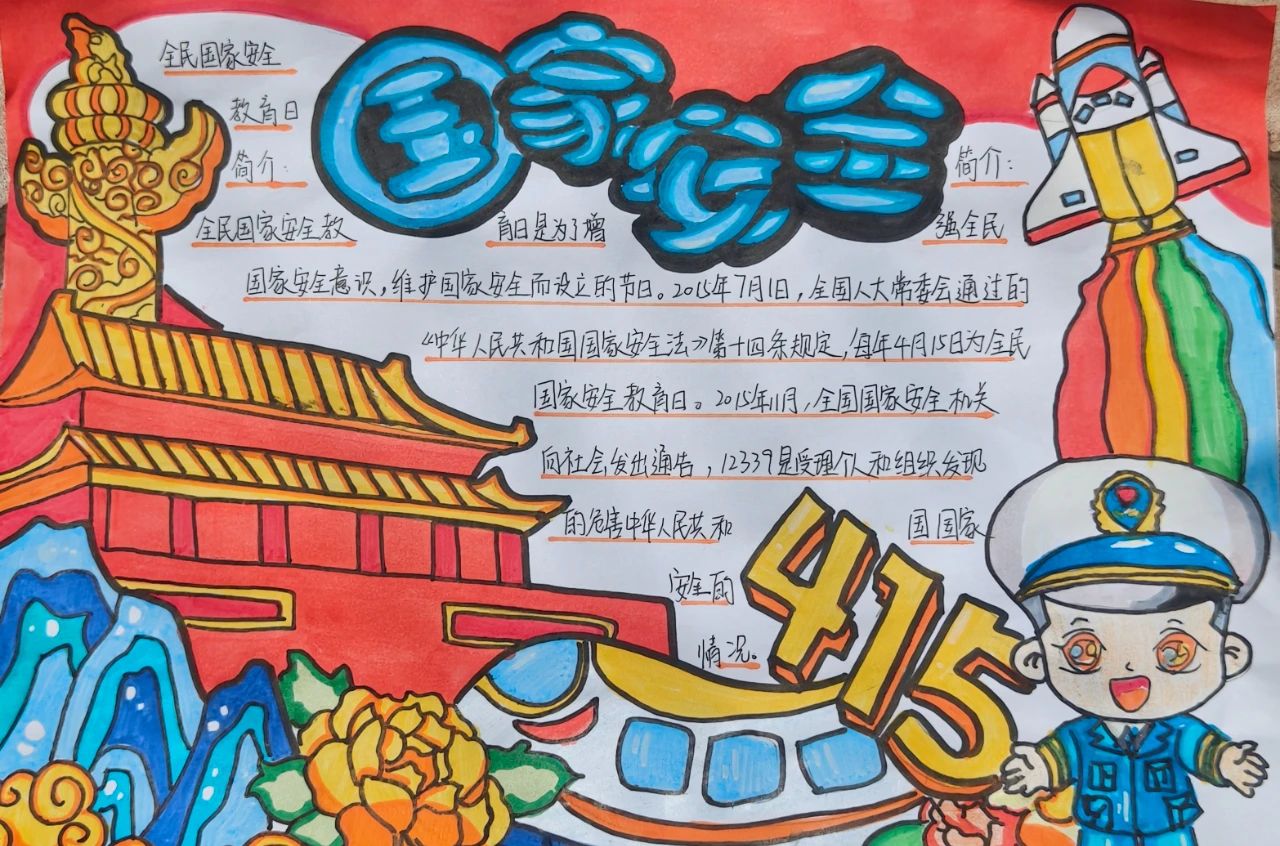 国家安全
全民国家安全
教育日
简介:
简介:
全民国家安全教 育日是为了增 强全民
国家安全意识,维护国家安全而设立的节日。2015年7月1日,全国人大常委会通过的
《中华人民共和国国家安全法》第十四条规定,每年4月15日为全民
国家安全教育日。2015年11月,全国国家安全机关
向社会发出通告,12339是受理个人和组织发现
的危害中华人民共和 国国家
安全的
情况。
415